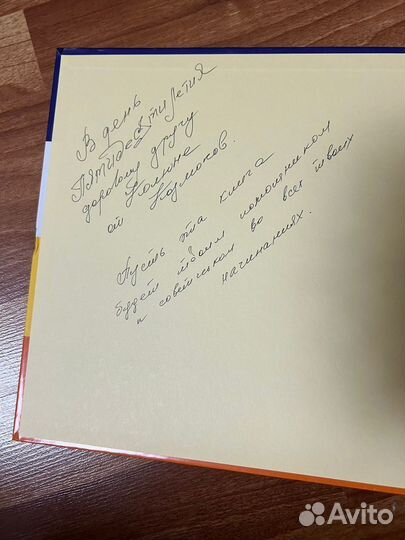 В день
Пятидесятилетия
дорогому другу
от
Пусть эта книга
будет твоим помощником
и советчиком во всех твоих
начинаниях.
Avito